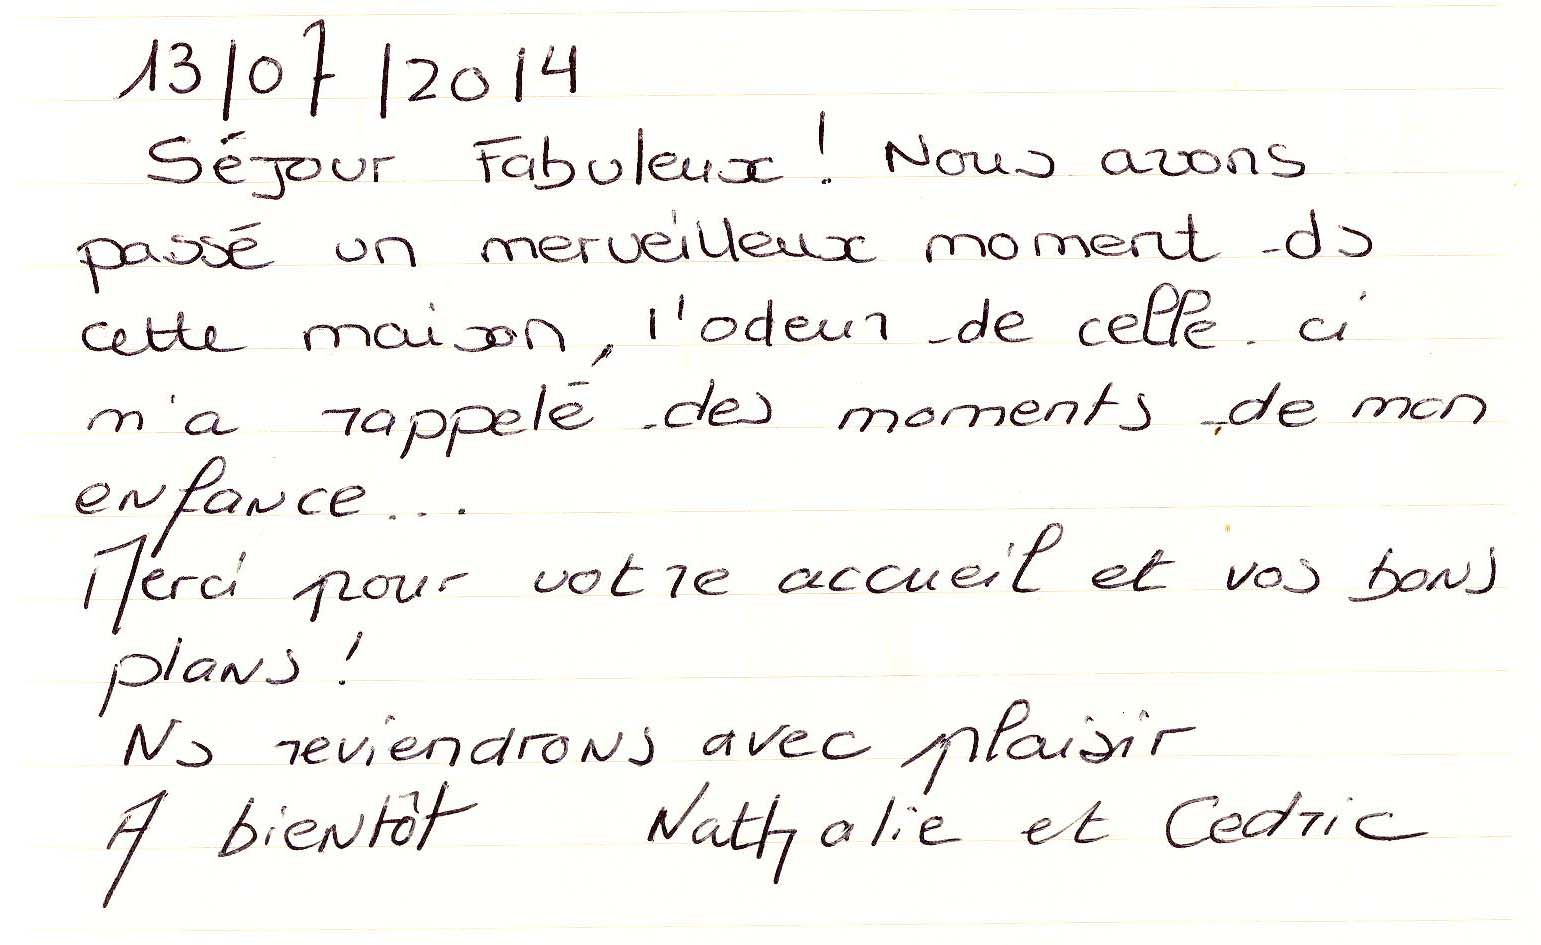 13/07/2014
Séjour Fabuleux ! Nous avons
passé un merveilleux moment ds
cette maison, l'odeur de celle-ci
m'a rappelé des moments de mon
enfance...
Merci pour votre accueil et vos bons
plans !
Ns reviendrons avec plaisir
A bientôt Nathalie et Cedric